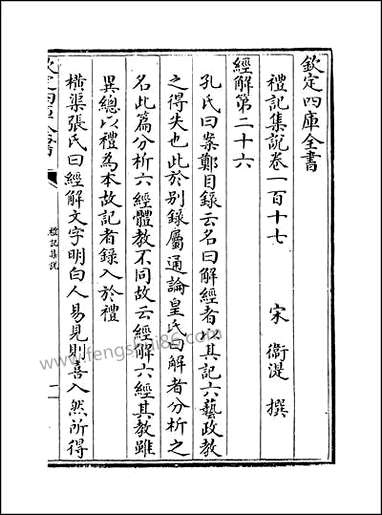 欽定四庫全書
禮記集説卷一百十七
宋 衞湜 撰
經解第二十六
孔氏曰案鄭目録云名曰解經者以其記六藝政教
之得失也此於別録屬通論皇氏曰解者分析之
名此篇分析六經體教不同故云經解六經其教雖
異總以禮為本故記者録入於禮
橫渠張氏曰經解文字明白人易見則喜入然所得
禮記集説
一
www.fengshui86.com